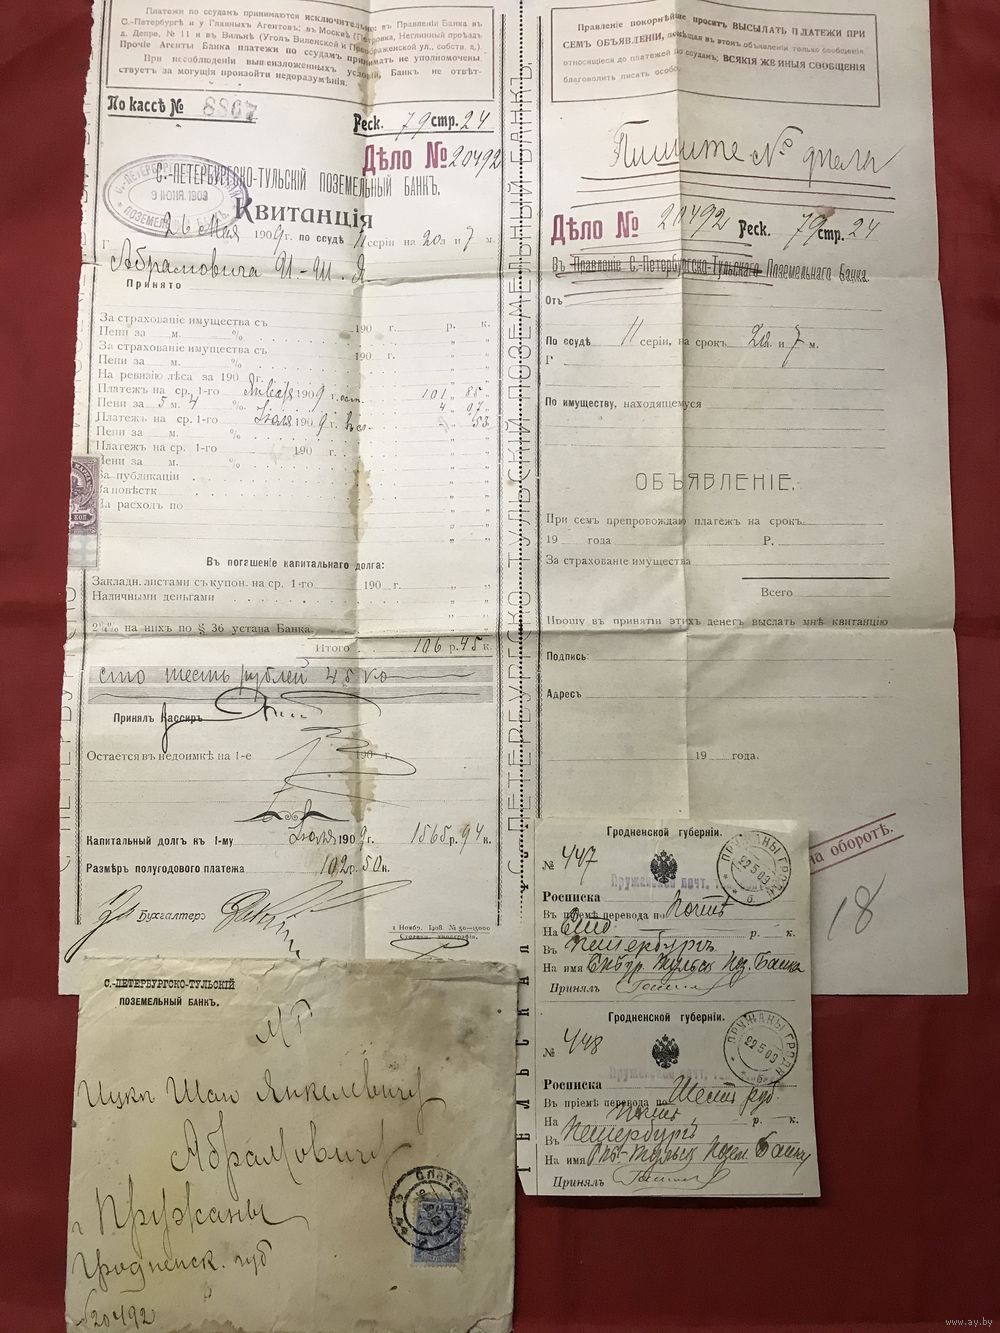 Платежи по ссудамъ принимаются исключительно: въ Правленіи Банка въ
С.-Петербургѣ и у Главныхъ Агентовъ: въ Москвѣ (Петровка, Неглинный проѣздъ
д. Депре, № 11 и въ Вильнѣ (Уголъ Виленской и Преображенской ул., собств. д.).
Прочіе Агенты Банка платежи по ссудамъ принимать не уполномочены.
При несоблюденіи вышеизложенныхъ условій, Банкъ не отвѣт-
ствуетъ за могущія произойти недоразумѣнія.
По кассѣ № 8867
Реск. 79 стр. 24
Дѣло № 20492
С.-ПЕТЕРБУРГСКО-ТУЛЬСКІЙ ПОЗЕМЕЛЬНЫЙ БАНКЪ.
9 ІЮНЯ 1909
Квитанція
26 Мая 1909 г. по ссудѣ 11 серіи на 20 л и 7 м.
Г Абрамовича И.-Ш. Я.
Принято
За страхованіе имущества съ 190 г. р. к.
Пени за м. %
За страхованіе имущества съ 190 г. „ „
Пени за м. %
На ревизію лѣса за 190 г.
Платежъ на ср. 1-го Января 1909 г. ост. 101 „ 85 „
Пени за 5 м. 4 % 4 „ 07 „
Платежъ на ср. 1-го Іюля 1909 г. 53 „
Пени за м. %
Платежъ на ср. 1-го 190 г.
Пени за м. %
За публикаціи
За повѣстк
На расходъ по
Въ погашеніе капитальнаго долга:
Закладн. листами съ купон. на ср. 1-го 190 г.
Наличными деньгами
2¼% на нихъ по § 36 устава Банка.
Итого 106 р. 45 к.
сто шесть рублей 45 ко
Принялъ Кассиръ
Остается въ недоимкѣ на 1-е 190 г.
Капитальный долгъ къ 1-му Іюля 1909 г. 1565 р. 94 к.
Размѣръ полугодового платежа 102 р. 50 к.
Бухгалтеръ
1 Ноябр. 1908. № 50—15000
Правленіе покорнѣйше проситъ ВЫСЫЛАТЬ ПЛАТЕЖИ ПРИ
СЕМЪ ОБЪЯВЛЕНІИ, помѣщая въ этомъ объявленіи только сообщенія
относящіеся до платежей по ссудамъ; ВСЯКІЯ ЖЕ ИНЫЯ СООБЩЕНІЯ
благоволить писать особо.
Пишите № дѣла
Дѣло № 20492 Реск. 79 стр. 24
Въ Правленіе С.-Петербургско-Тульскаго Поземельнаго Банка.
Отъ
По ссудѣ 11 серіи, на срокъ 20 л. и 7 м.
Г
По имуществу, находящемуся
ОБЪЯВЛЕНІЕ.
При семъ препровождаю платежъ на срокъ
19 года Р.
За страхованіе имущества
Всего
Прошу въ принятіи этихъ денегъ выслать мнѣ квитанцію
Подпись:
Адресъ
19 года.
на оборотѣ.
18
Гродненской губерніи.
№ 447
ПРУЖАНЫ ГРОДН.
22 5 09
Росписка
Въ пріемѣ перевода по Почтѣ
На Сто р. к.
Въ Петербургъ
На имя Спбур. Тульск. Поз. Банка
Принялъ
Гродненской губерніи.
№ 448
ПРУЖАНЫ ГРОДН.
22 5 09
Росписка
Въ пріемѣ перевода по Шесть руб
На Почтѣ р. к.
Въ Петербургъ
На имя Спб-Тульск Позем. Банку
Принялъ
С.-ПЕТЕРБУРГСКО-ТУЛЬСКІЙ
ПОЗЕМЕЛЬНЫЙ БАНКЪ.
Ицкѣ Шае Янкелевичу
Абрамовичу
г Пружаны
Гродненск. губ
№20492
www.ay.by